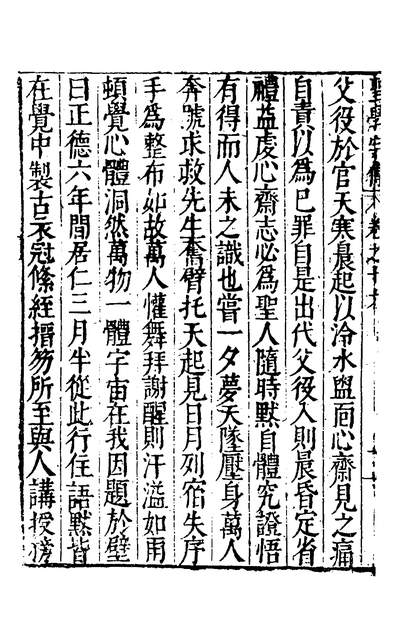 父役於官天寒晨起以冷水盥面心齋見之痛
自責以爲己罪自是出代父役入則晨昏定省
禮益虔心齋志必爲聖人隨時默自體究證悟
有得而人未之識也嘗一夕夢天墜壓身萬人
奔號求救先生奮臂托天起見日月列宿失序
手爲整布如故萬人懽舞拜謝醒則汗溢如雨
頓覺心體洞然萬物一體宇宙在我因題於壁
曰正德六年間居仁三月半從此行住語默皆
在覺中製古衣冠絛絰搢笏所至與人講授榜